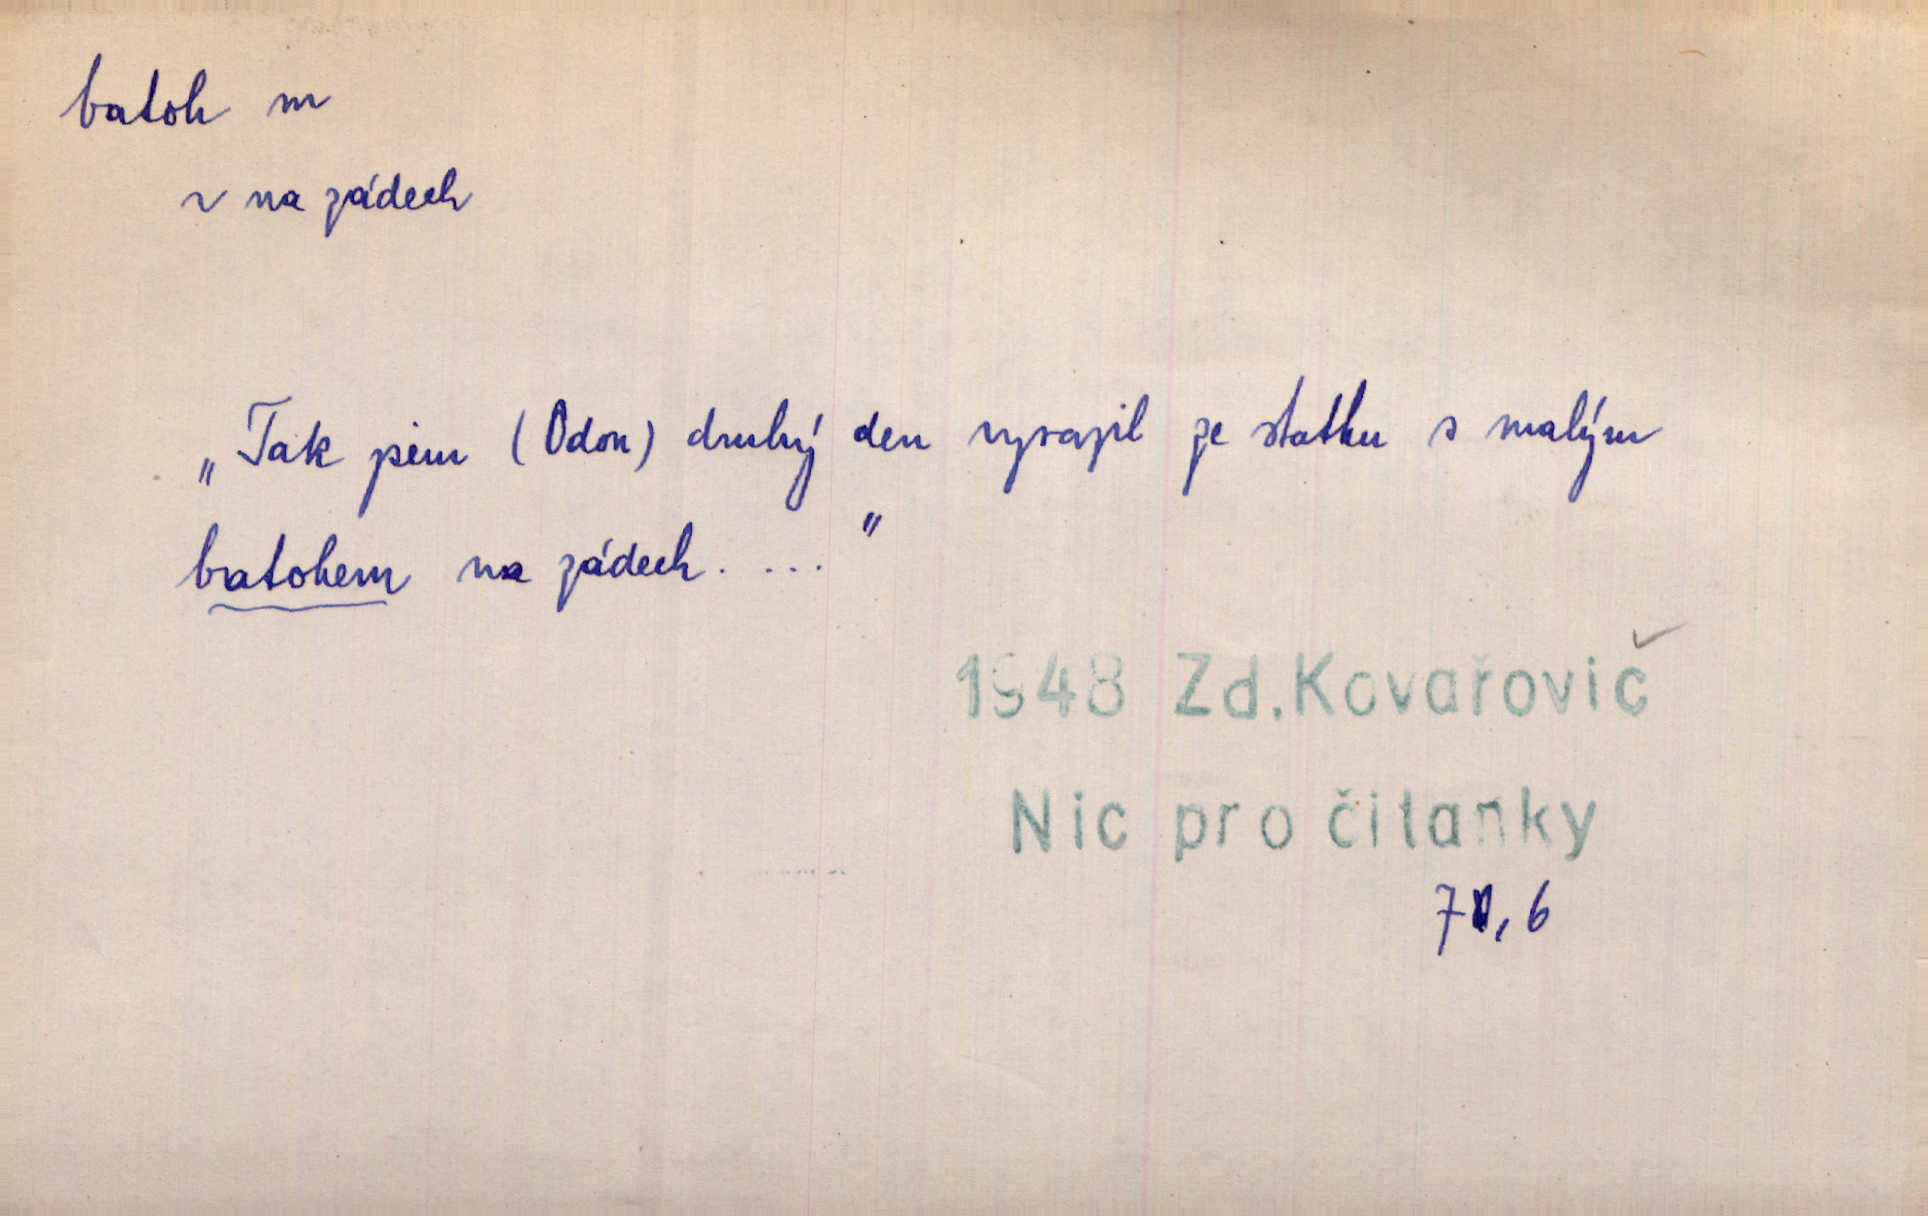 batoh m
~ na zádech
„Tak jsem (Odon) druhý den vyrazil ze statku s malým
batohem na zádech. ..."
1948 Zd.Kovařovič
Nic pro čitanky
71,6